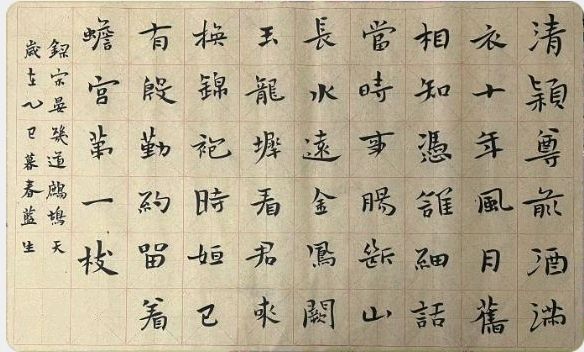 清穎尊前酒滿
衣十年風月舊
相知憑誰細話
當時事腸斷山
長水遠金鳳闕
玉龍墀看君來
換錦袍時姮已
有殷勤約留着
蟾宮第一枝
録宋晏幾道鷓鴣天
歲在乙巳暮春藍生